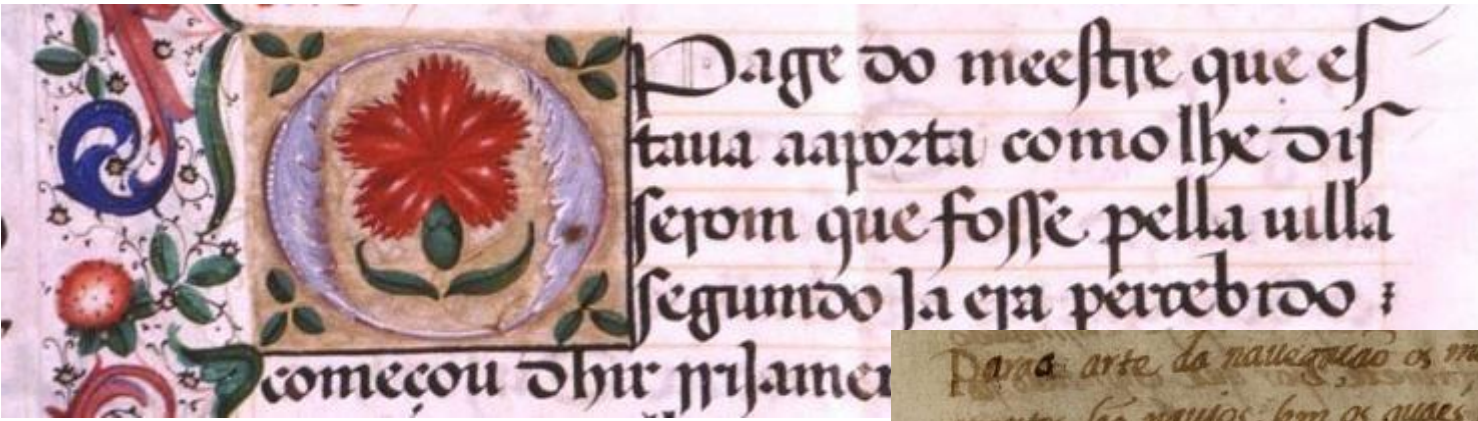 O Page do meestre que es
taua aaporta como lhe dis
serom que fosse pella uilla
segumdo ja era percebido :
começou dhir rrijamen
Para a arte da nauegação os
são nauios, sem os quaes